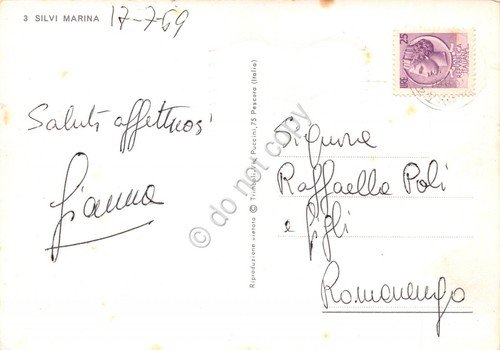 3 SILVI MARINA
17-7-69
Saluti affettuosi
Gianna
Riproduzione vietata © Trimboli, Puccini, 75 Pescara (Italia)
© do not copy
LIRE 25
REPUBBLICA ITALIANA
Signora
Raffaella Poli
e figli
Romanengo